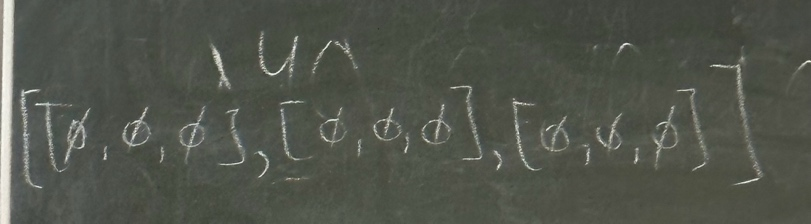 [[ϕ, ϕ, ϕ], [ϕ, ϕ, ϕ], [ϕ, ϕ, ϕ]]